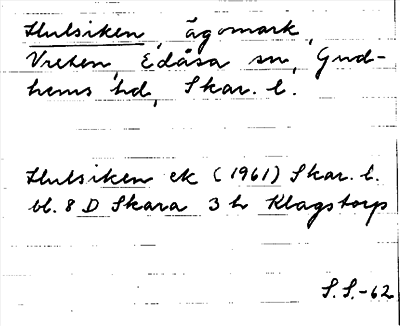 Hulsiken, ägomark,
Vreten, Edåsa sn, Gud-
hems hd, Skar. l.
Hulsiken ek (1961) Skar. l.
bl. 8 D Skara 3 h Klagstorp
S.S.-62